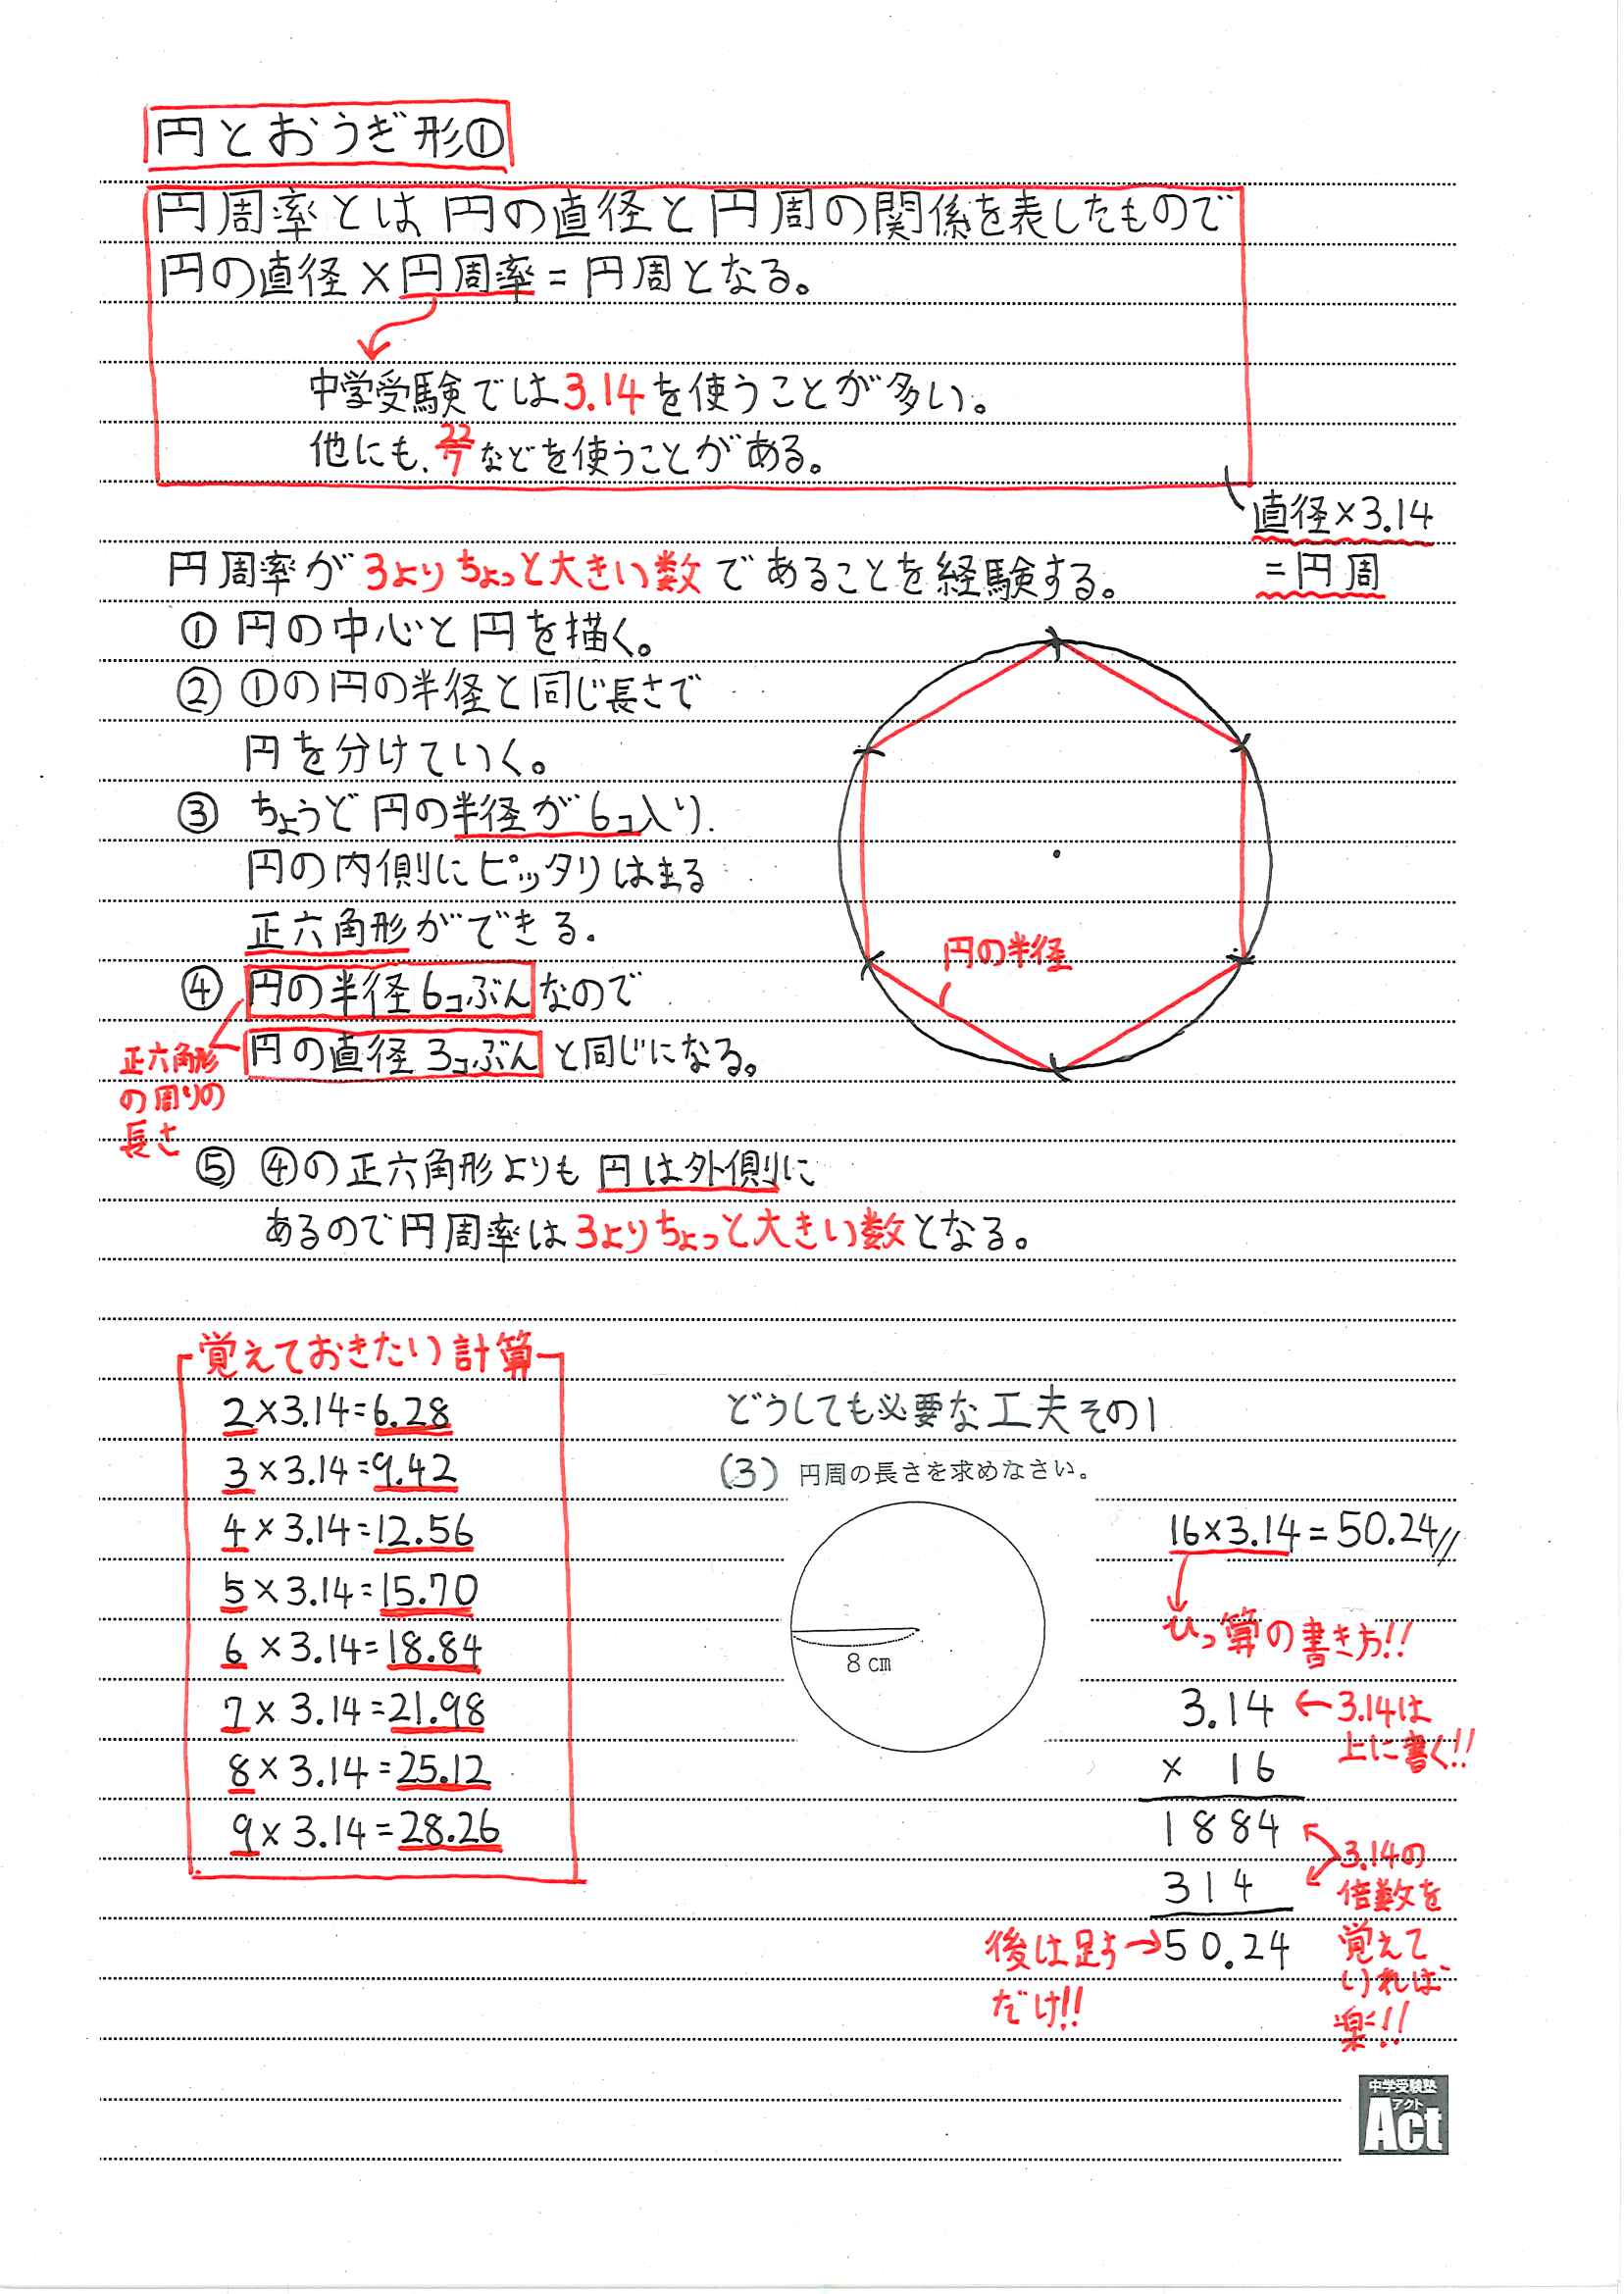 円とおうぎ形①
円周率とは円の直径と円周の関係を表したもので
円の直径×円周率=円周となる。
中学受験では3.14を使うことが多い。
他にも、22/7などを使うことがある。
直径×3.14
=円周
円周率が3よりちょっと大きい数であることを経験する。
①円の中心と円を描く。
②①の円の半径と同じ長さで
円を分けていく。
③ちょうど円の半径が6コ入り、
円の内側にピッタリはまる
正六角形ができる。
円の半径
④円の半径6コぶんなので
円の直径3コぶんと同じになる。
正六角形
の周りの
長さ
⑤④の正六角形よりも円は外側に
あるので円周率は3よりちょっと大きい数となる。
覚えておきたい計算
2×3.14=6.28
3×3.14=9.42
4×3.14=12.56
5×3.14=15.70
6×3.14=18.84
7×3.14=21.98
8×3.14=25.12
9×3.14=28.26
どうしても必要な工夫その1
(3)円周の長さを求めなさい。
8cm
16×3.14=50.24//
ひっ算の書き方!!
3.14←3.14は
上に書く!!
×16
1884
314
3.14の
倍数を
覚えて
いれば
楽!!
後は足す→50.24
だけ!!
中学受験塾
アクト
Act